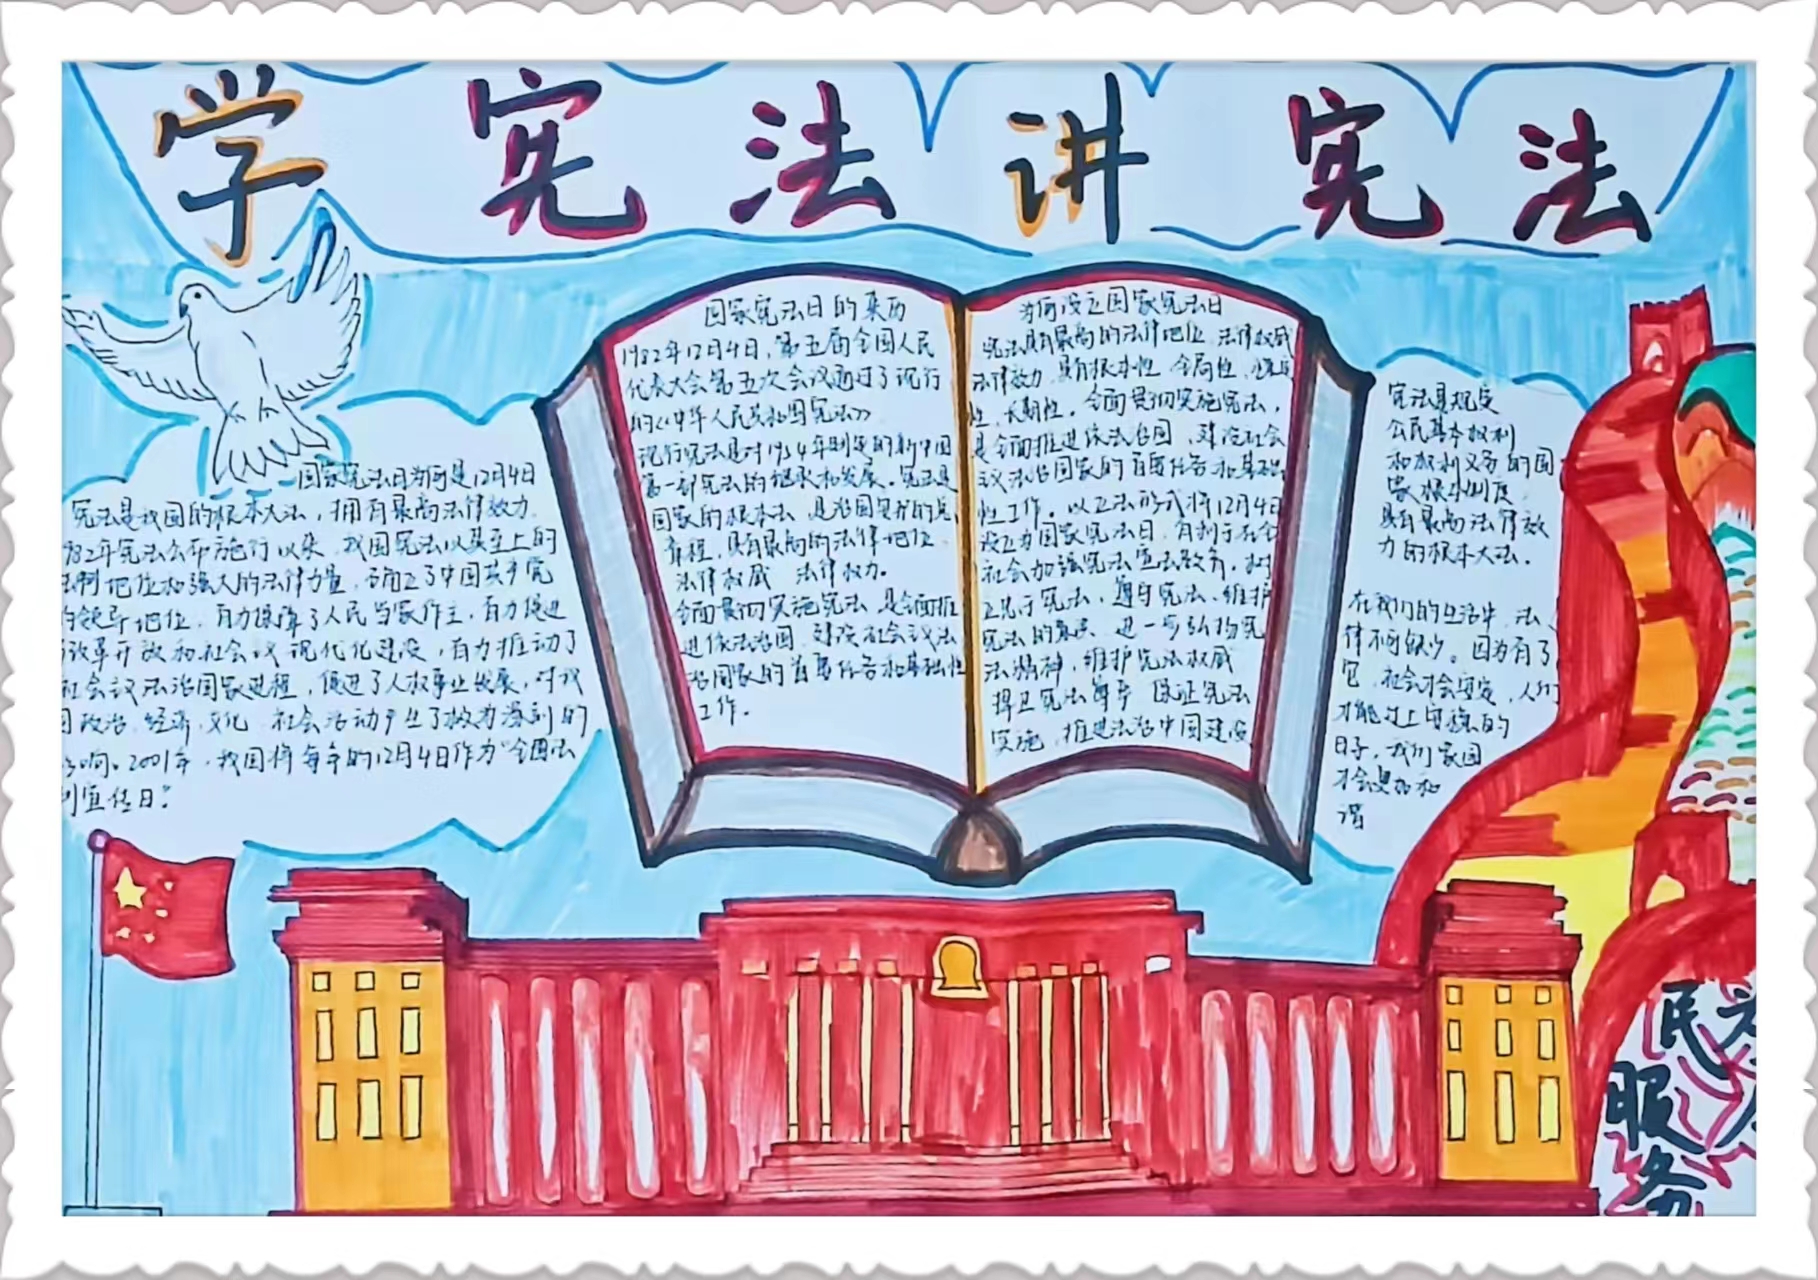 学宪法讲宪法
国家宪法日为何是12月4日
宪法是我国的根本大法,拥有最高法律效力
982年宪法公布施行以来,我国宪法以其至上的
法制地位和强大的法律力量,确立了中国共产党
的领导地位,有力保障了人民当家作主,有力促进
改革开放和社会议现代化建设,有力推动了
社会议法治国家进程,促进了人权事业发展,对我
国政治、经济、文化、社会活动产生了极为深刻的
影响。2001年,我国将每年的12月4日作为“全国法
制宣传日”
国家宪法日的来历
1982年12月4日,第五届全国人民
代表大会第五次会议通过了现行
的《中华人民共和国宪法》
现行宪法是对1954年制定的新中国
第一部宪法的继承和发展。宪法是
国家的根本法 是治国安邦的总
章程,具有最高的法律地位
法律权威 法律权力.
全面贯彻实施宪法 是全面推
进依法治国,建设社会议法
治国家的首要任务和基础性
工作.
为何设立国家宪法日
宪法具有最高的法律地位 法律权威
法律效力,具有根本性 全局性、稳定
性、长期性.全面贯彻实施宪法,
是全面推进依法治国,建设社会
议法治国家的首要任务和基础
性工作.以立法形式将12月4日
设立为国家宪法日,有利于在全
社会加强宪法宣法教育,对
宪法,遵守宪法、维护
宪法的意识 进一步弘扬宪
法精神,维护宪法权威
捍卫宪法尊严 保证宪法
实施,推进法治中国建设
宪法是规定
公民基本权利
和权利义务的国
家根本制度
具有最高法律效
力的根本大法.
在我们的生活中,法
律不可缺少。因为有了
它,社会才会安定,人们
才能过上安稳的
日子,我们家园
才会更加和
谐
民
服
务